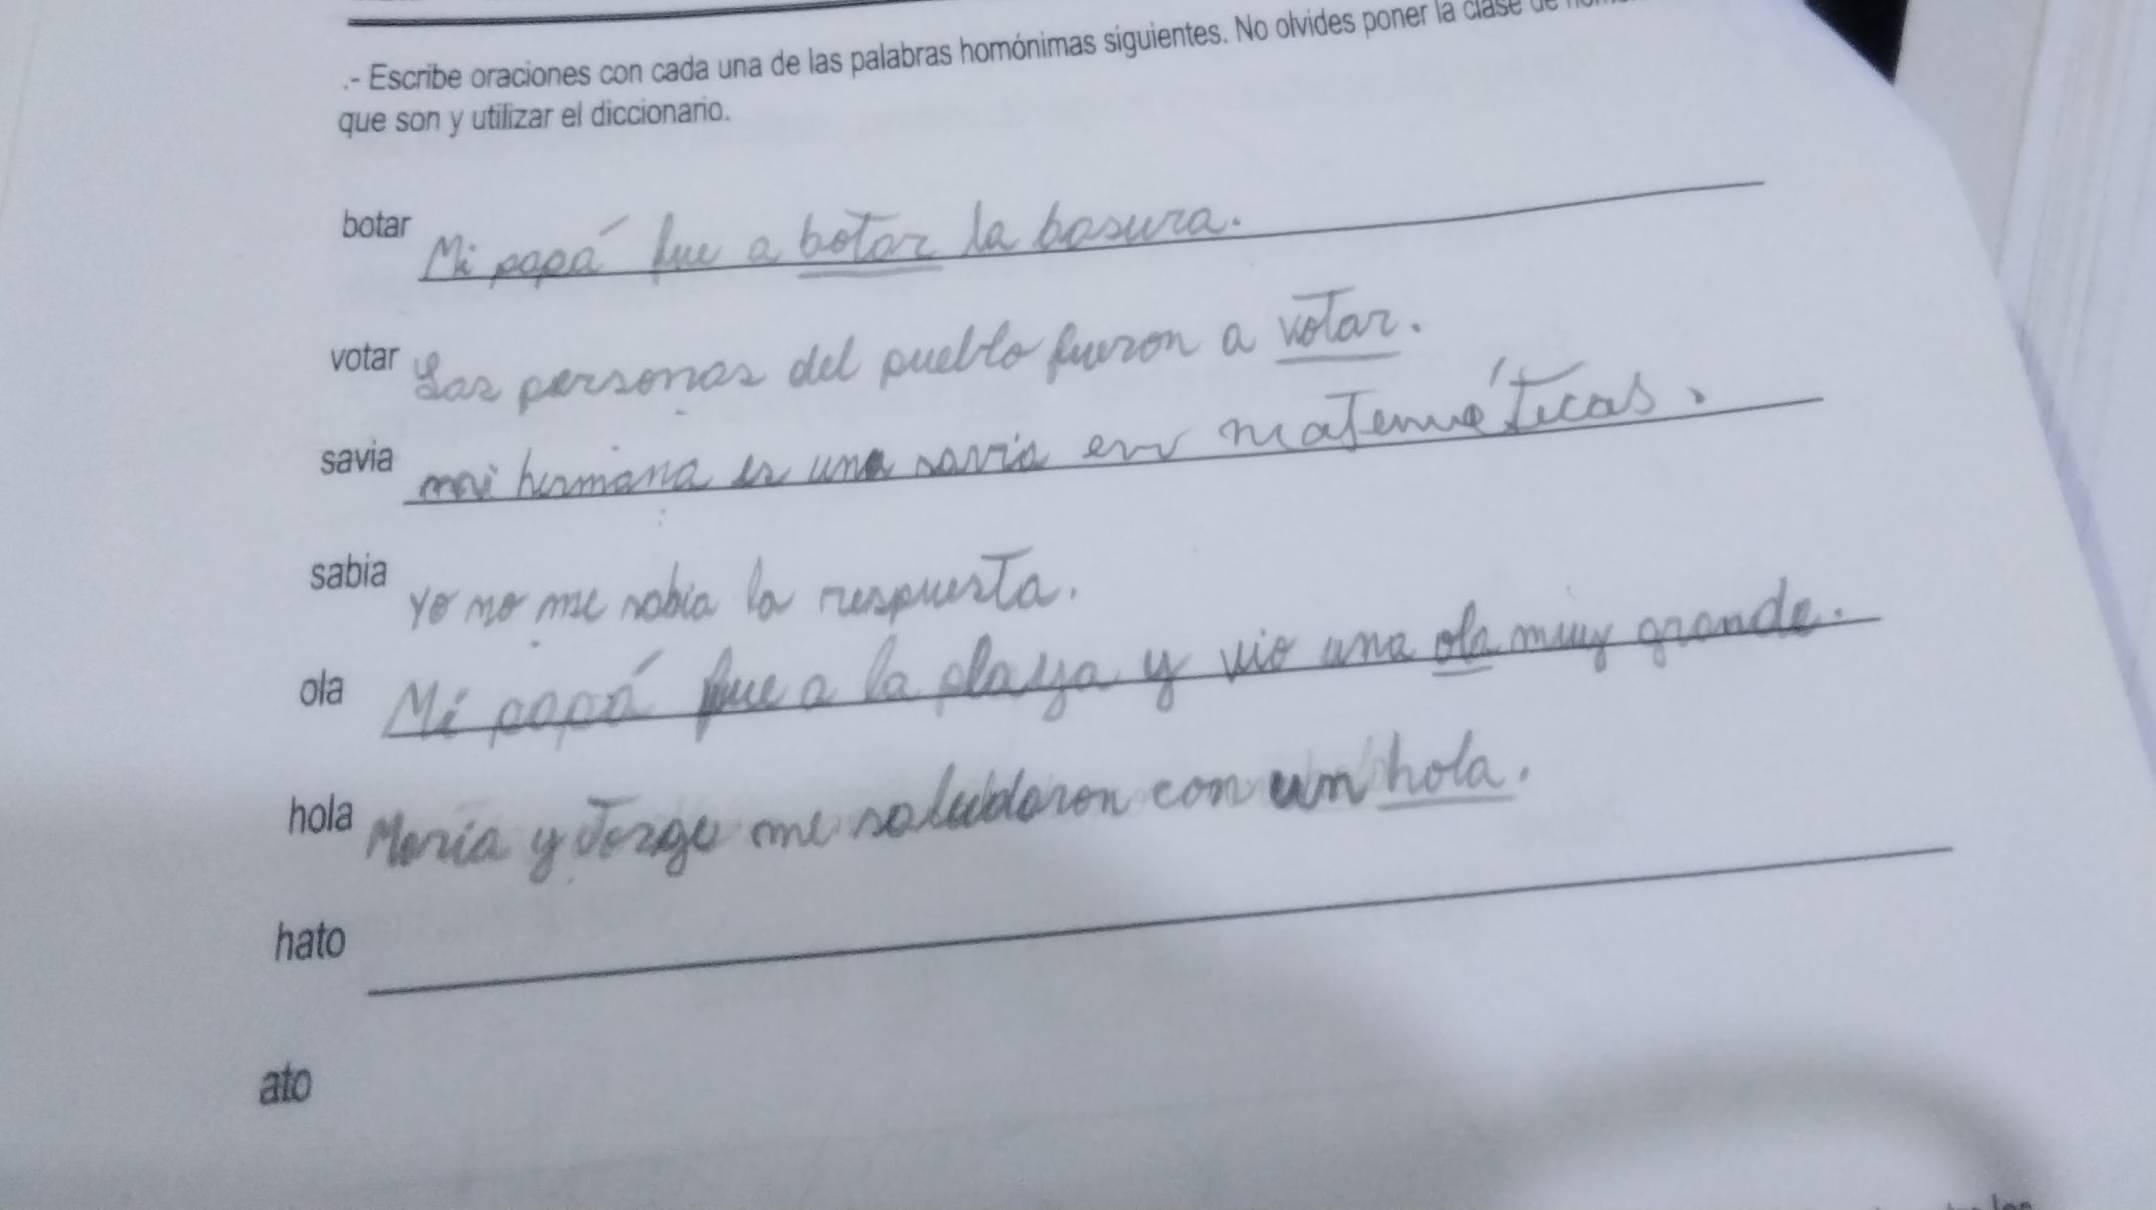 .- Escribe oraciones con cada una de las palabras homónimas siguientes. No olvides poner la clase de
que son y utilizar el diccionario.
botar Mi papá fue a botar la basura.
votar Las personas del pueblo fueron a votar.
savia mi hermana es una savia en matemáticas.
sabia Yo no me sabia la respuesta.
ola Mi papá fue a la playa y vio una ola muy grande.
hola Maria y Jorge me saludaron con un hola.
hato
ato